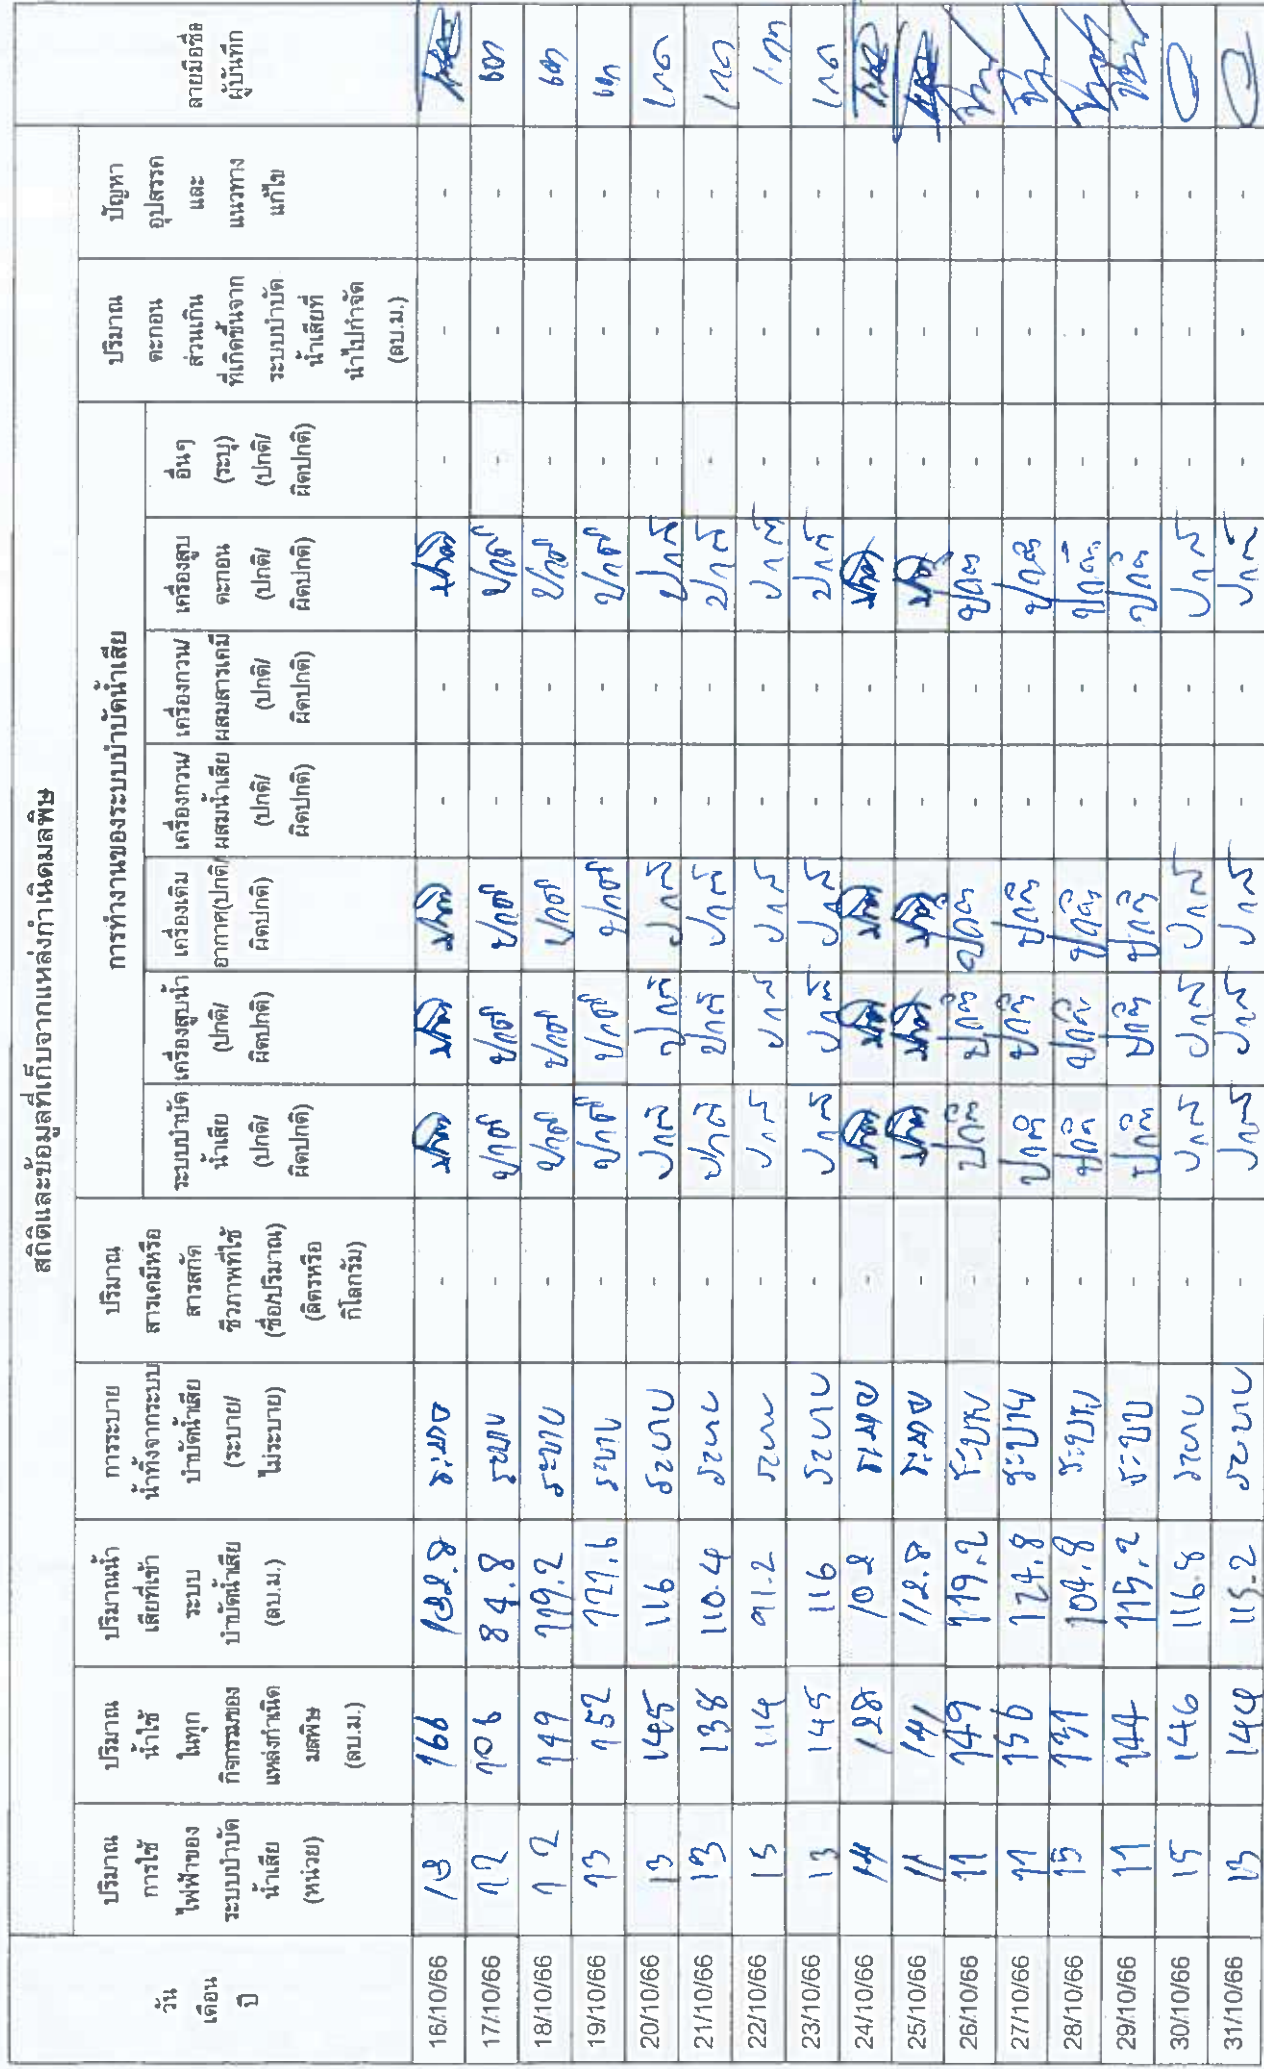 สถิติและข้อมูลที่เก็บจากแหล่งกำเนิดมลพิษ
วัน เดือน ปี
ปริมาณ การใช้ ไฟฟ้าของ ระบบบำบัด น้ำเสีย (หน่วย)
ปริมาณ น้ำใช้ ในทุก กิจกรรมของ แหล่งกำเนิด มลพิษ (ลบ.ม.)
ปริมาณน้ำ เสียที่เข้า ระบบ บำบัดน้ำเสีย (ลบ.ม.)
การระบาย น้ำทิ้งจากระบบ บำบัดน้ำเสีย (ระบาย/ ไม่ระบาย)
ปริมาณ สารเคมีหรือ สารสกัด ชีวภาพที่ใช้ (ชื่อ/ปริมาณ) (ลิตรหรือ กิโลกรัม)
การทำงานของระบบบำบัดน้ำเสีย
ระบบบำบัด น้ำเสีย (ปกติ/ ผิดปกติ)
เครื่องสูบน้ำ (ปกติ/ ผิดปกติ)
เครื่องเติม อากาศ(ปกติ/ ผิดปกติ)
เครื่องกวน/ ผสมน้ำเสีย (ปกติ/ ผิดปกติ)
เครื่องกวน/ ผสมสารเคมี (ปกติ/ ผิดปกติ)
เครื่องสูบ ตะกอน (ปกติ/ ผิดปกติ)
อื่นๆ (ระบุ) (ปกติ/ ผิดปกติ)
ปริมาณ ตะกอน ส่วนเกิน ที่เกิดขึ้นจาก ระบบบำบัด น้ำเสียที่ นำไปกำจัด (ลบ.ม.)
ปัญหา อุปสรรค และ แนวทาง แก้ไข
ลายมือชื่อ ผู้บันทึก
16/10/66 13 166 132.8 ระบาย - ปกติ ปกติ ปกติ - - ปกติ - - -
17/10/66 12 106 84.8 ระบาย - ปกติ ปกติ ปกติ - - ปกติ - - -
18/10/66 12 149 119.2 ระบาย - ปกติ ปกติ ปกติ - - ปกติ - - -
19/10/66 13 152 121.6 ระบาย - ปกติ ปกติ ปกติ - - ปกติ - - -
20/10/66 13 145 116 ระบาย - ปกติ ปกติ ปกติ - - ปกติ - - -
21/10/66 13 138 110.4 ระบาย - ปกติ ปกติ ปกติ - - ปกติ - - -
22/10/66 15 114 91.2 ระบาย - ปกติ ปกติ ปกติ - - ปกติ - - -
23/10/66 13 145 116 ระบาย - ปกติ ปกติ ปกติ - - ปกติ - - -
24/10/66 14 128 102 ระบาย - ปกติ ปกติ ปกติ - - ปกติ - - -
25/10/66 11 141 112.8 ระบาย - ปกติ ปกติ ปกติ - - ปกติ - - -
26/10/66 11 149 119.2 ระบาย - ปกติ ปกติ ปกติ - - ปกติ - - -
27/10/66 11 156 124.8 ระบาย - ปกติ ปกติ ปกติ - - ปกติ - - -
28/10/66 15 131 104.8 ระบาย - ปกติ ปกติ ปกติ - - ปกติ - - -
29/10/66 11 144 115.2 ระบาย - ปกติ ปกติ ปกติ - - ปกติ - - -
30/10/66 15 146 116.8 ระบาย - ปกติ ปกติ ปกติ - - ปกติ - - -
31/10/66 13 144 115.2 ระบาย - ปกติ ปกติ ปกติ - - ปกติ - - -